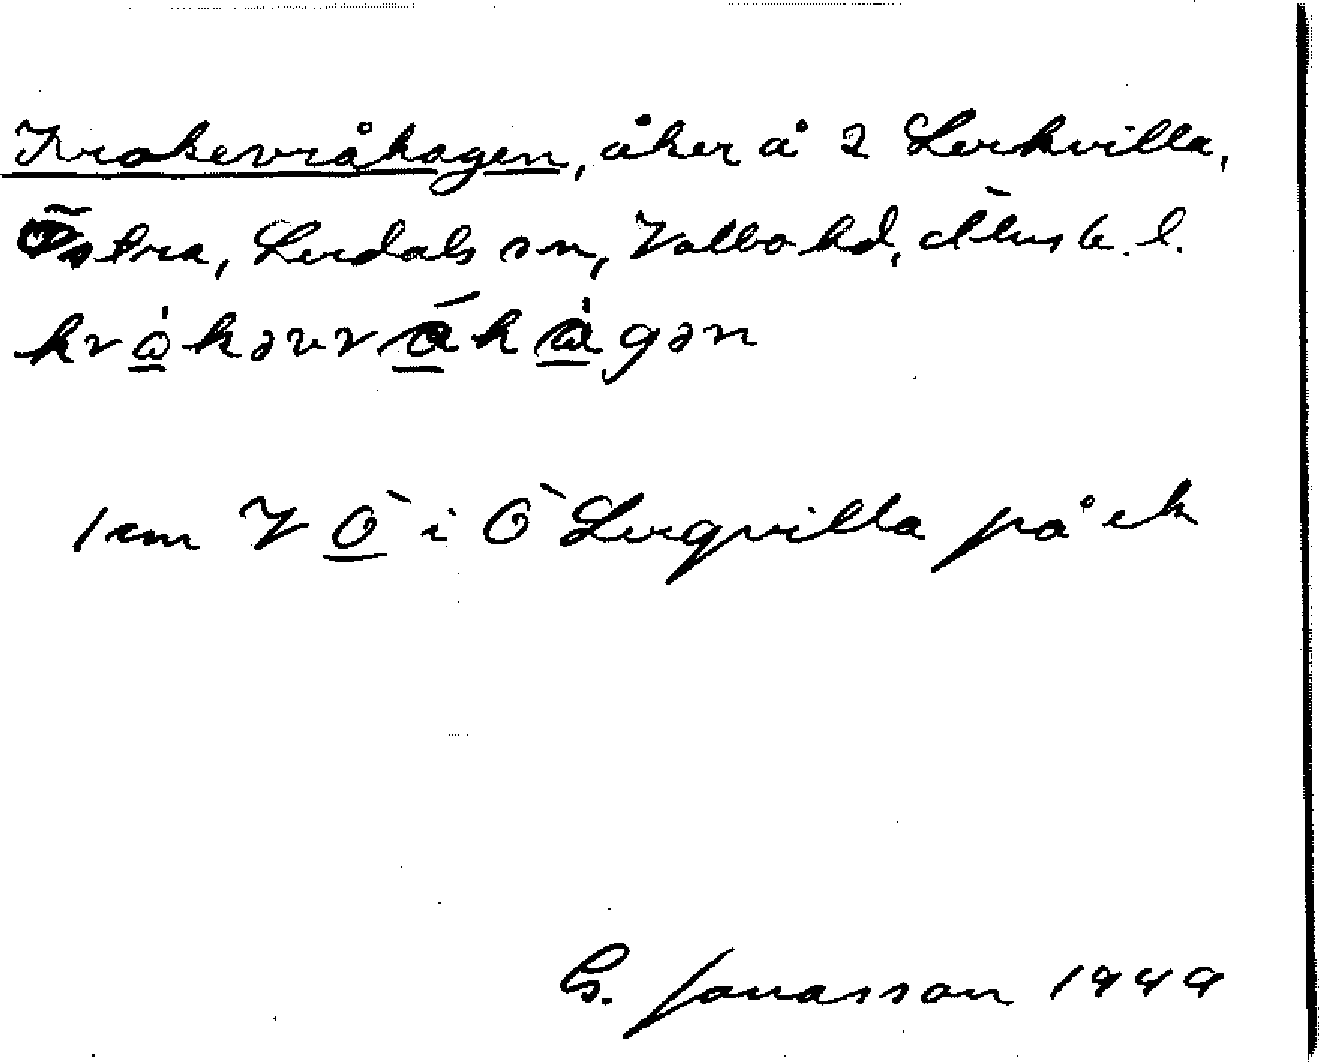 Krokevråhagen, åker å 2 Lerkvilla,
Östra, Lerdals sn, Valbo hd, Älvsb. l.
kråkəvvråhàgən
1 km V Ö i Ö Lerqvilla på ek
G. Jonasson 1949